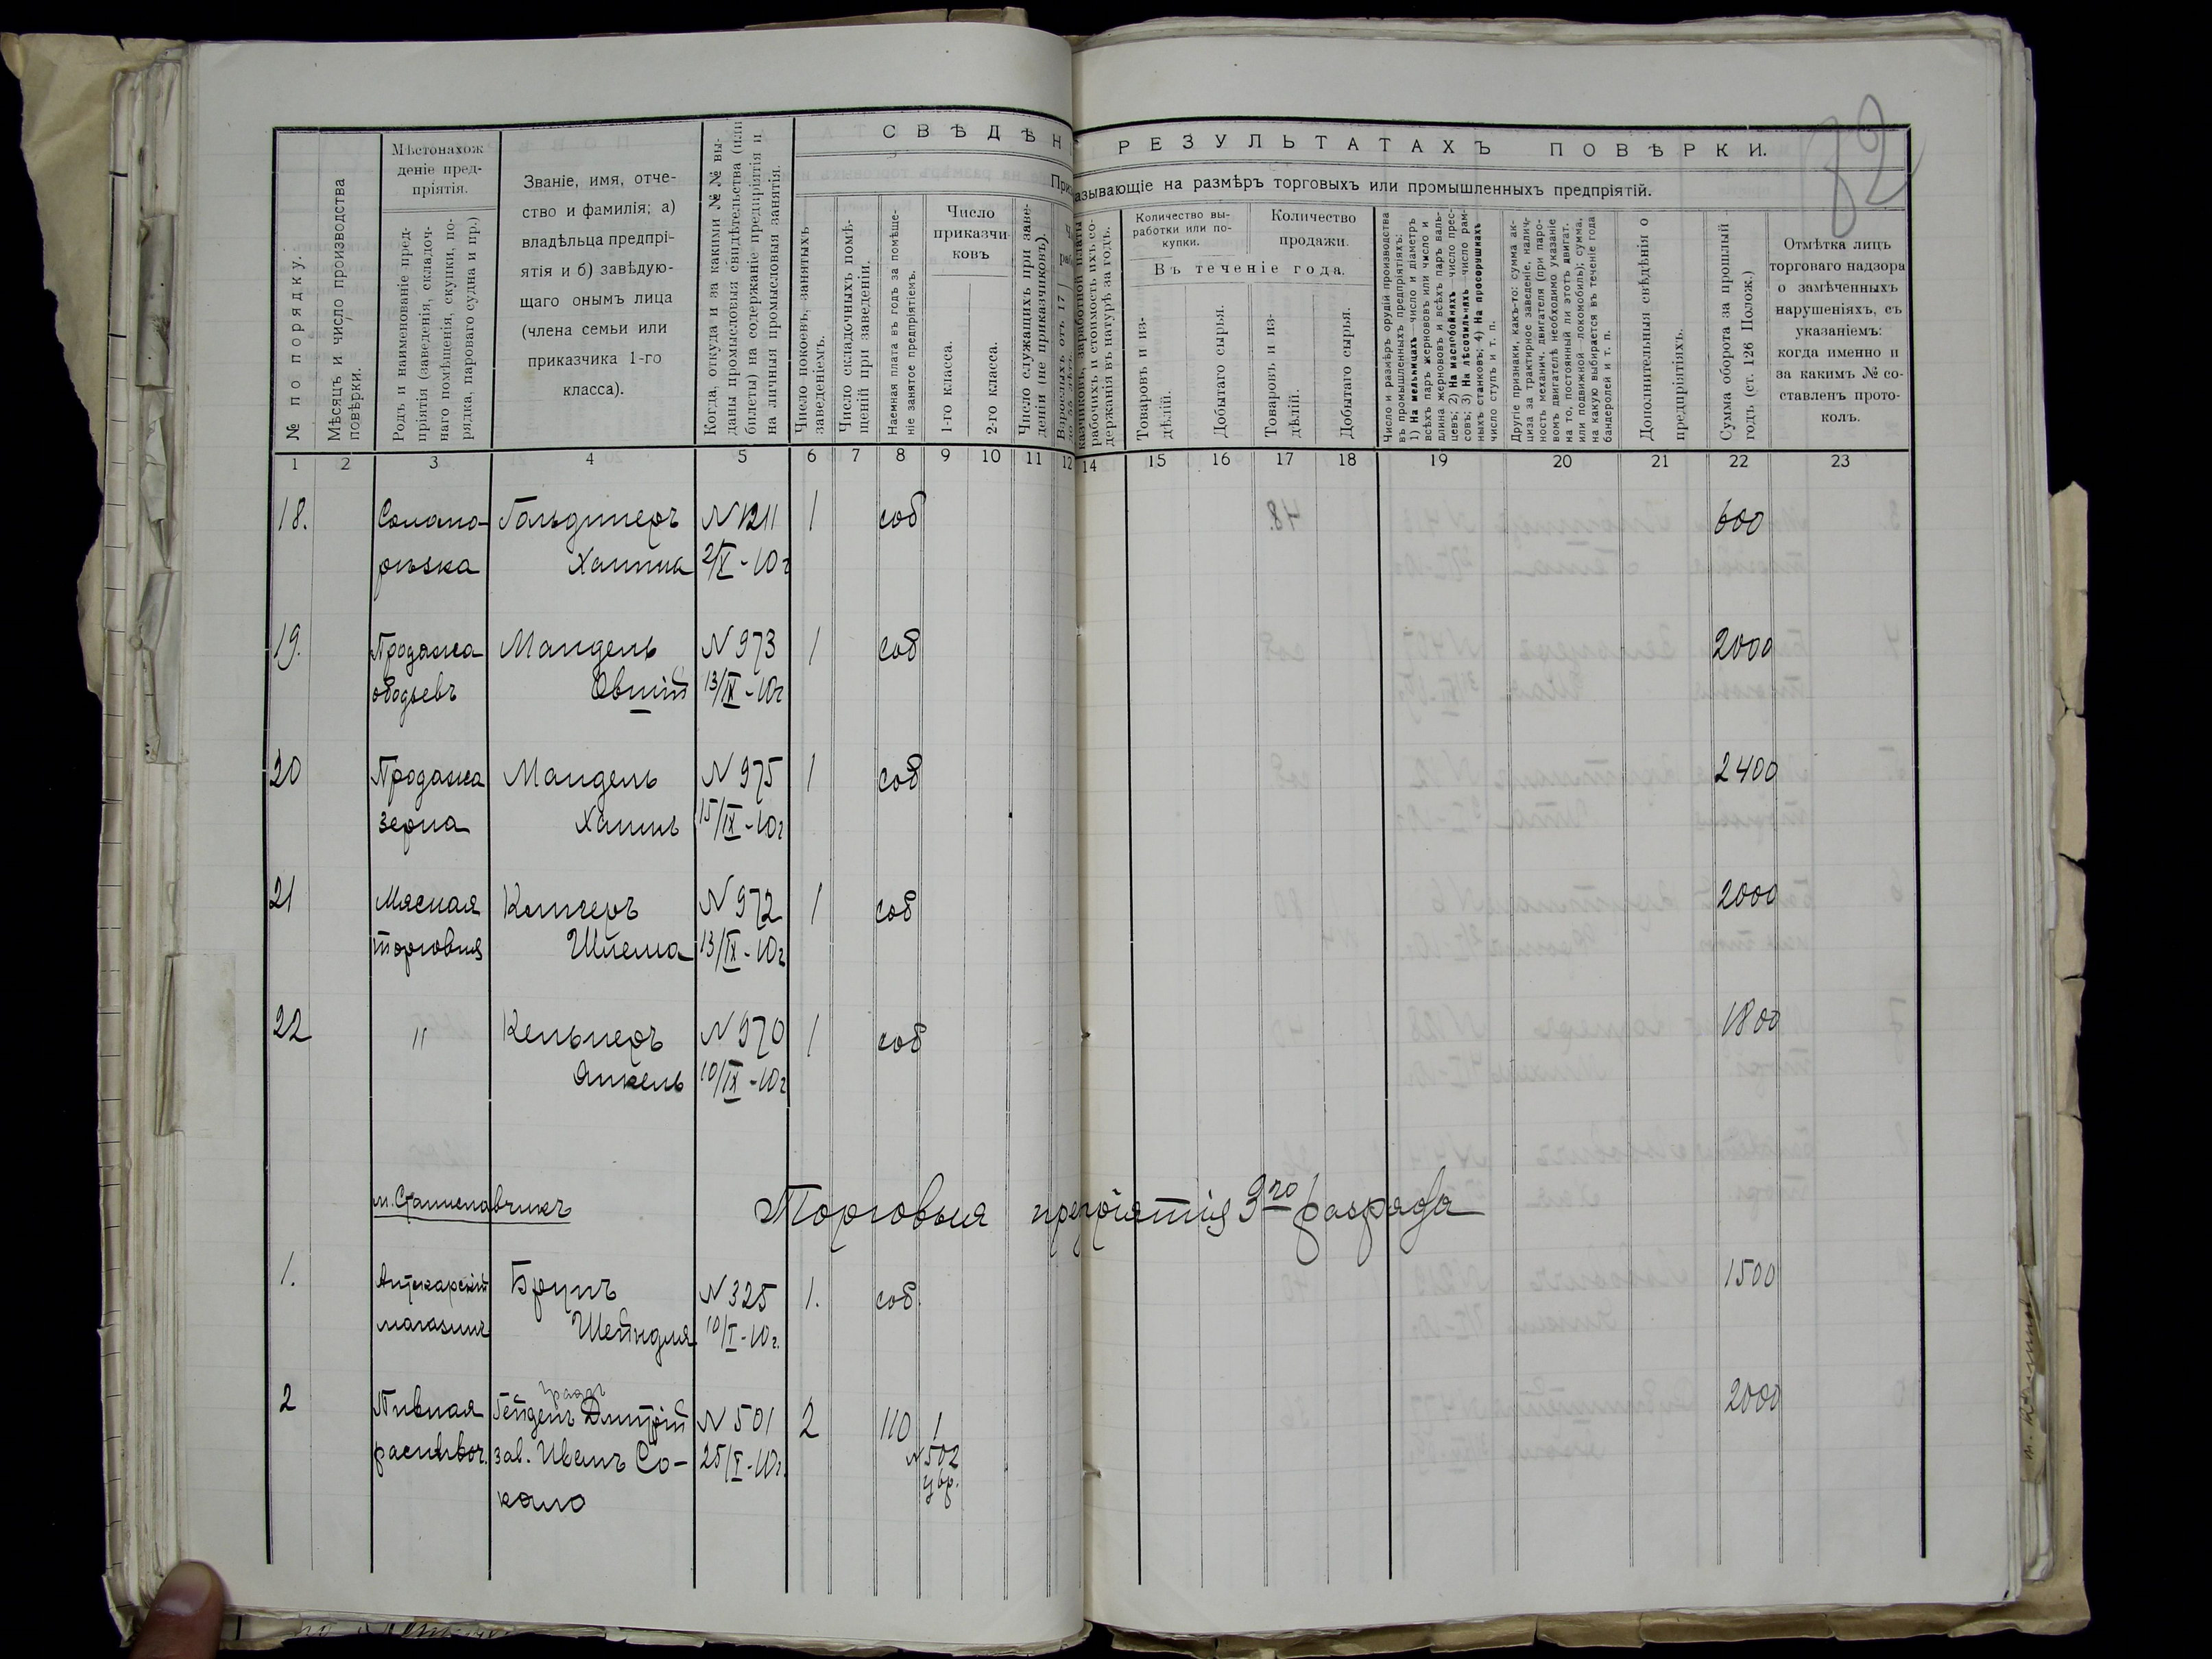 82
СВѢДѢН
РЕЗУЛЬТАТАХЪ ПОВѢРКИ.
Приз
азывающіе на размѣръ торговыхъ или промышленныхъ предпріятій.
№ по порядку.
Мѣсяцъ и число производства
повѣрки.
Мѣстонахож
деніе пред-
пріятія.
Родъ и наименованіе пред-
пріятія (заведенія, складоч-
наго помѣщенія, скупки, по-
рядка, парового судна и пр.)
Званіе, имя, отче-
ство и фамилія; а)
владѣльца предпрі-
ятія и б) завѣдую-
щаго онымъ лица
(члена семьи или
приказчика 1-го
класса).
Когда, откуда и за какими №№ вы-
даны промысловыя свидѣтельства (или
билеты) на содержаніе предпріятія и
на личныя промысловыя занятія.
Число покоевъ, занятыхъ
заведеніемъ.
Число складочныхъ помѣ-
щеній при заведеніи.
Наемная плата въ годъ за помѣще-
ніе занятое предпріятіемъ.
Число
приказчи
ковъ
1-го класса.
2-го класса.
Число служащихъ при заве-
деніи (не приказчиковъ).
Взрослыхъ отъ 17
казчиковъ, заработной платы
рабочихъ и стоимость ихъ со-
держанія въ натурѣ за годъ.
Количество вы-
работки или по-
купки.
Количество
продажи.
Въ теченіе года.
Товаровъ и из-
дѣлій.
Добытаго сырья.
Товаровъ и из-
дѣлій.
Добытаго сырья.
Число и размѣръ орудій производства
въ промышленныхъ предпріятіяхъ:
1) На мельницахъ число и діаметръ
всѣхъ паръ жернововъ или число и
длина жернововъ и всѣхъ паръ валь-
цевъ; 2) На маслобойняхъ число прес-
совъ; 3) На лѣсопильняхъ число рам-
ныхъ станковъ; 4) На просорушкахъ
число ступъ и т. п.
Другіе признаки, какъ-то: сумма ак-
циза за трактирное заведеніе, налич-
ность механич. двигателя (при паро-
вомъ двигателѣ необходимо указаніе
на то, постоянный ли этотъ двигат.
или подвижной—локомобиль); сумма,
на какую выбирается въ теченіе года
бандеролей и т. п.
Дополнительныя свѣдѣнія о
предпріятіяхъ.
Сумма оборота за прошлый
годъ (ст. 126 Полож.)
Отмѣтка лицъ
торговаго надзора
о замѣченныхъ
нарушеніяхъ, съ
указаніемъ:
когда именно и
за какимъ № со-
ставленъ прото-
колъ.
1 2 3 4 5 6 7 8 9 10 11 12 14 15 16 17 18 19 20 21 22 23
18. Солома- Гольдинеръ N 1211 1 соб 600
рѣзка 2/X-10г
19. Продажа Мандель N 973 1 соб 2000
ободьевъ 13/IX-10г
20 Продажа Мандель N 975 1 соб 2400
зерна Хаимъ 15/IX-10г
21 Мясная N 972 1 соб 2000
торговля Шлема 13/IX-10г
22 " Кельнеръ N 970 1 соб 1800
Янкель 10/IX-10г
м. Станиславчикъ Торговыя предпріятія 3го разряда
1. Аптекарскій Брунъ N 325 1. соб. 1500
магазинъ Шейндля 10/I-10г.
графъ
2 Пивная Гейденъ Дмитрій N 501 2 110 1 2000
распивоч. зав. Иванъ Со- 25/I-10г. N 502
кало